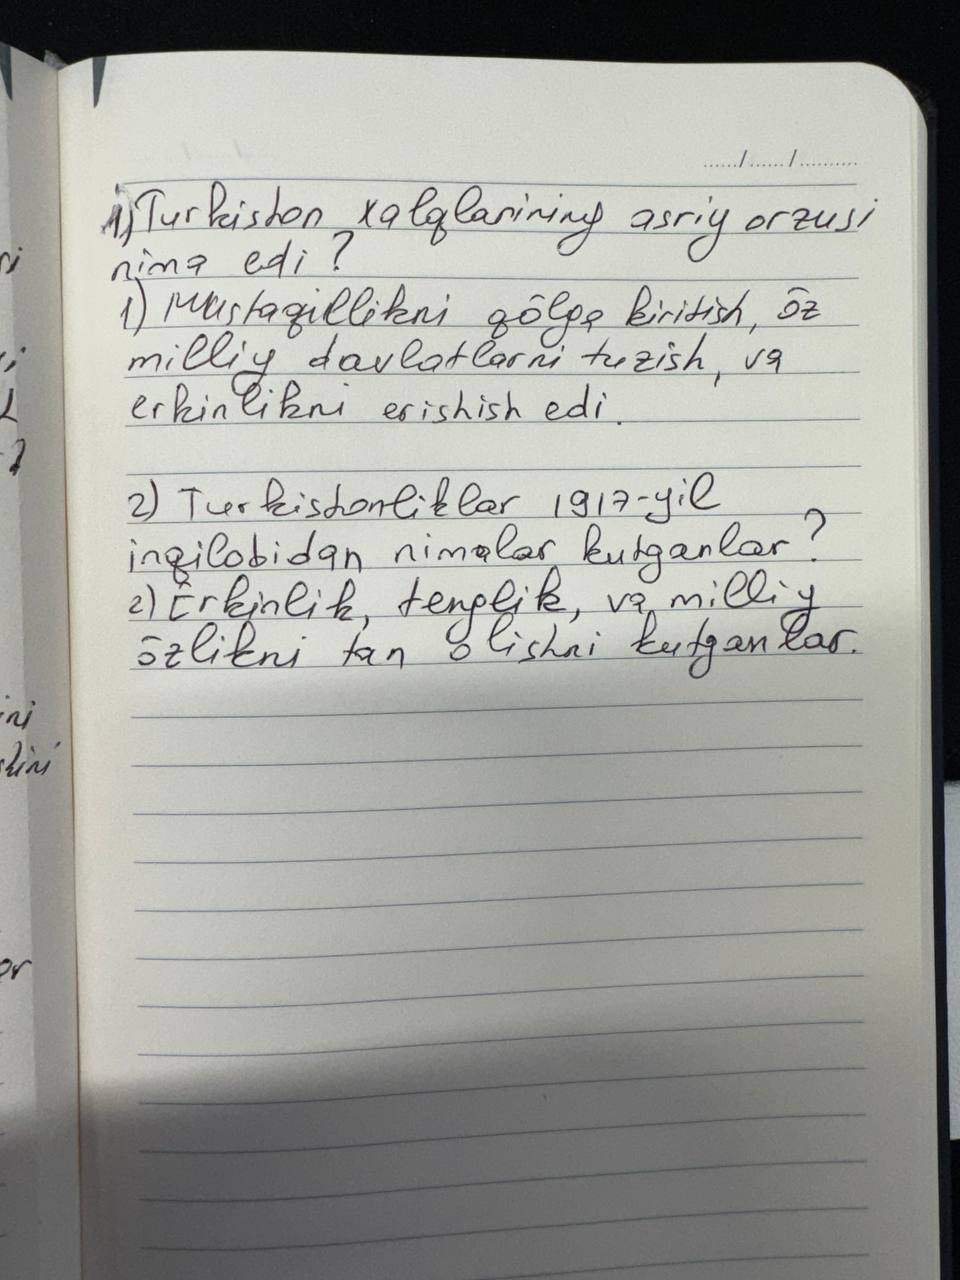 1) Turkiston xalqlarining asriy orzusi
nima edi?
1) Mustaqillikni qōlga kiritish, ōz
milliy davlatlarni tuzish, va
erkinlikni erishish edi.
2) Turkistonliklar 1917-yil
inqilobidan nimalar kutganlar?
2) Erkinlik, tenglik, va milliy
ōzlikni tan olishni kutganlar.